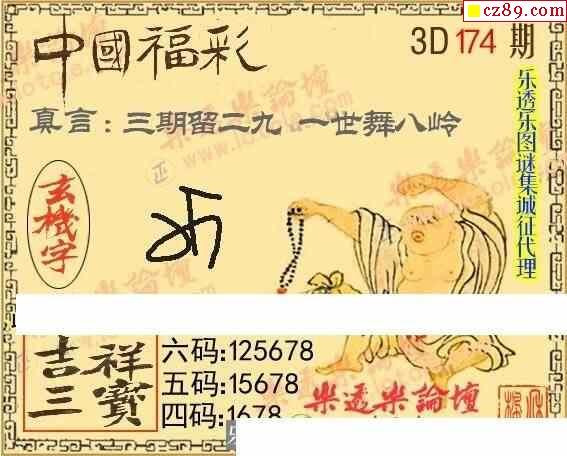 cz89.com
中國福彩
3D 174 期
真言：三期留二九 一世舞八岭
乐透乐图谜集诚征代理
玄機字
吉祥
三寶
六码:125678
五码:15678
四码:1678
樂透樂論壇